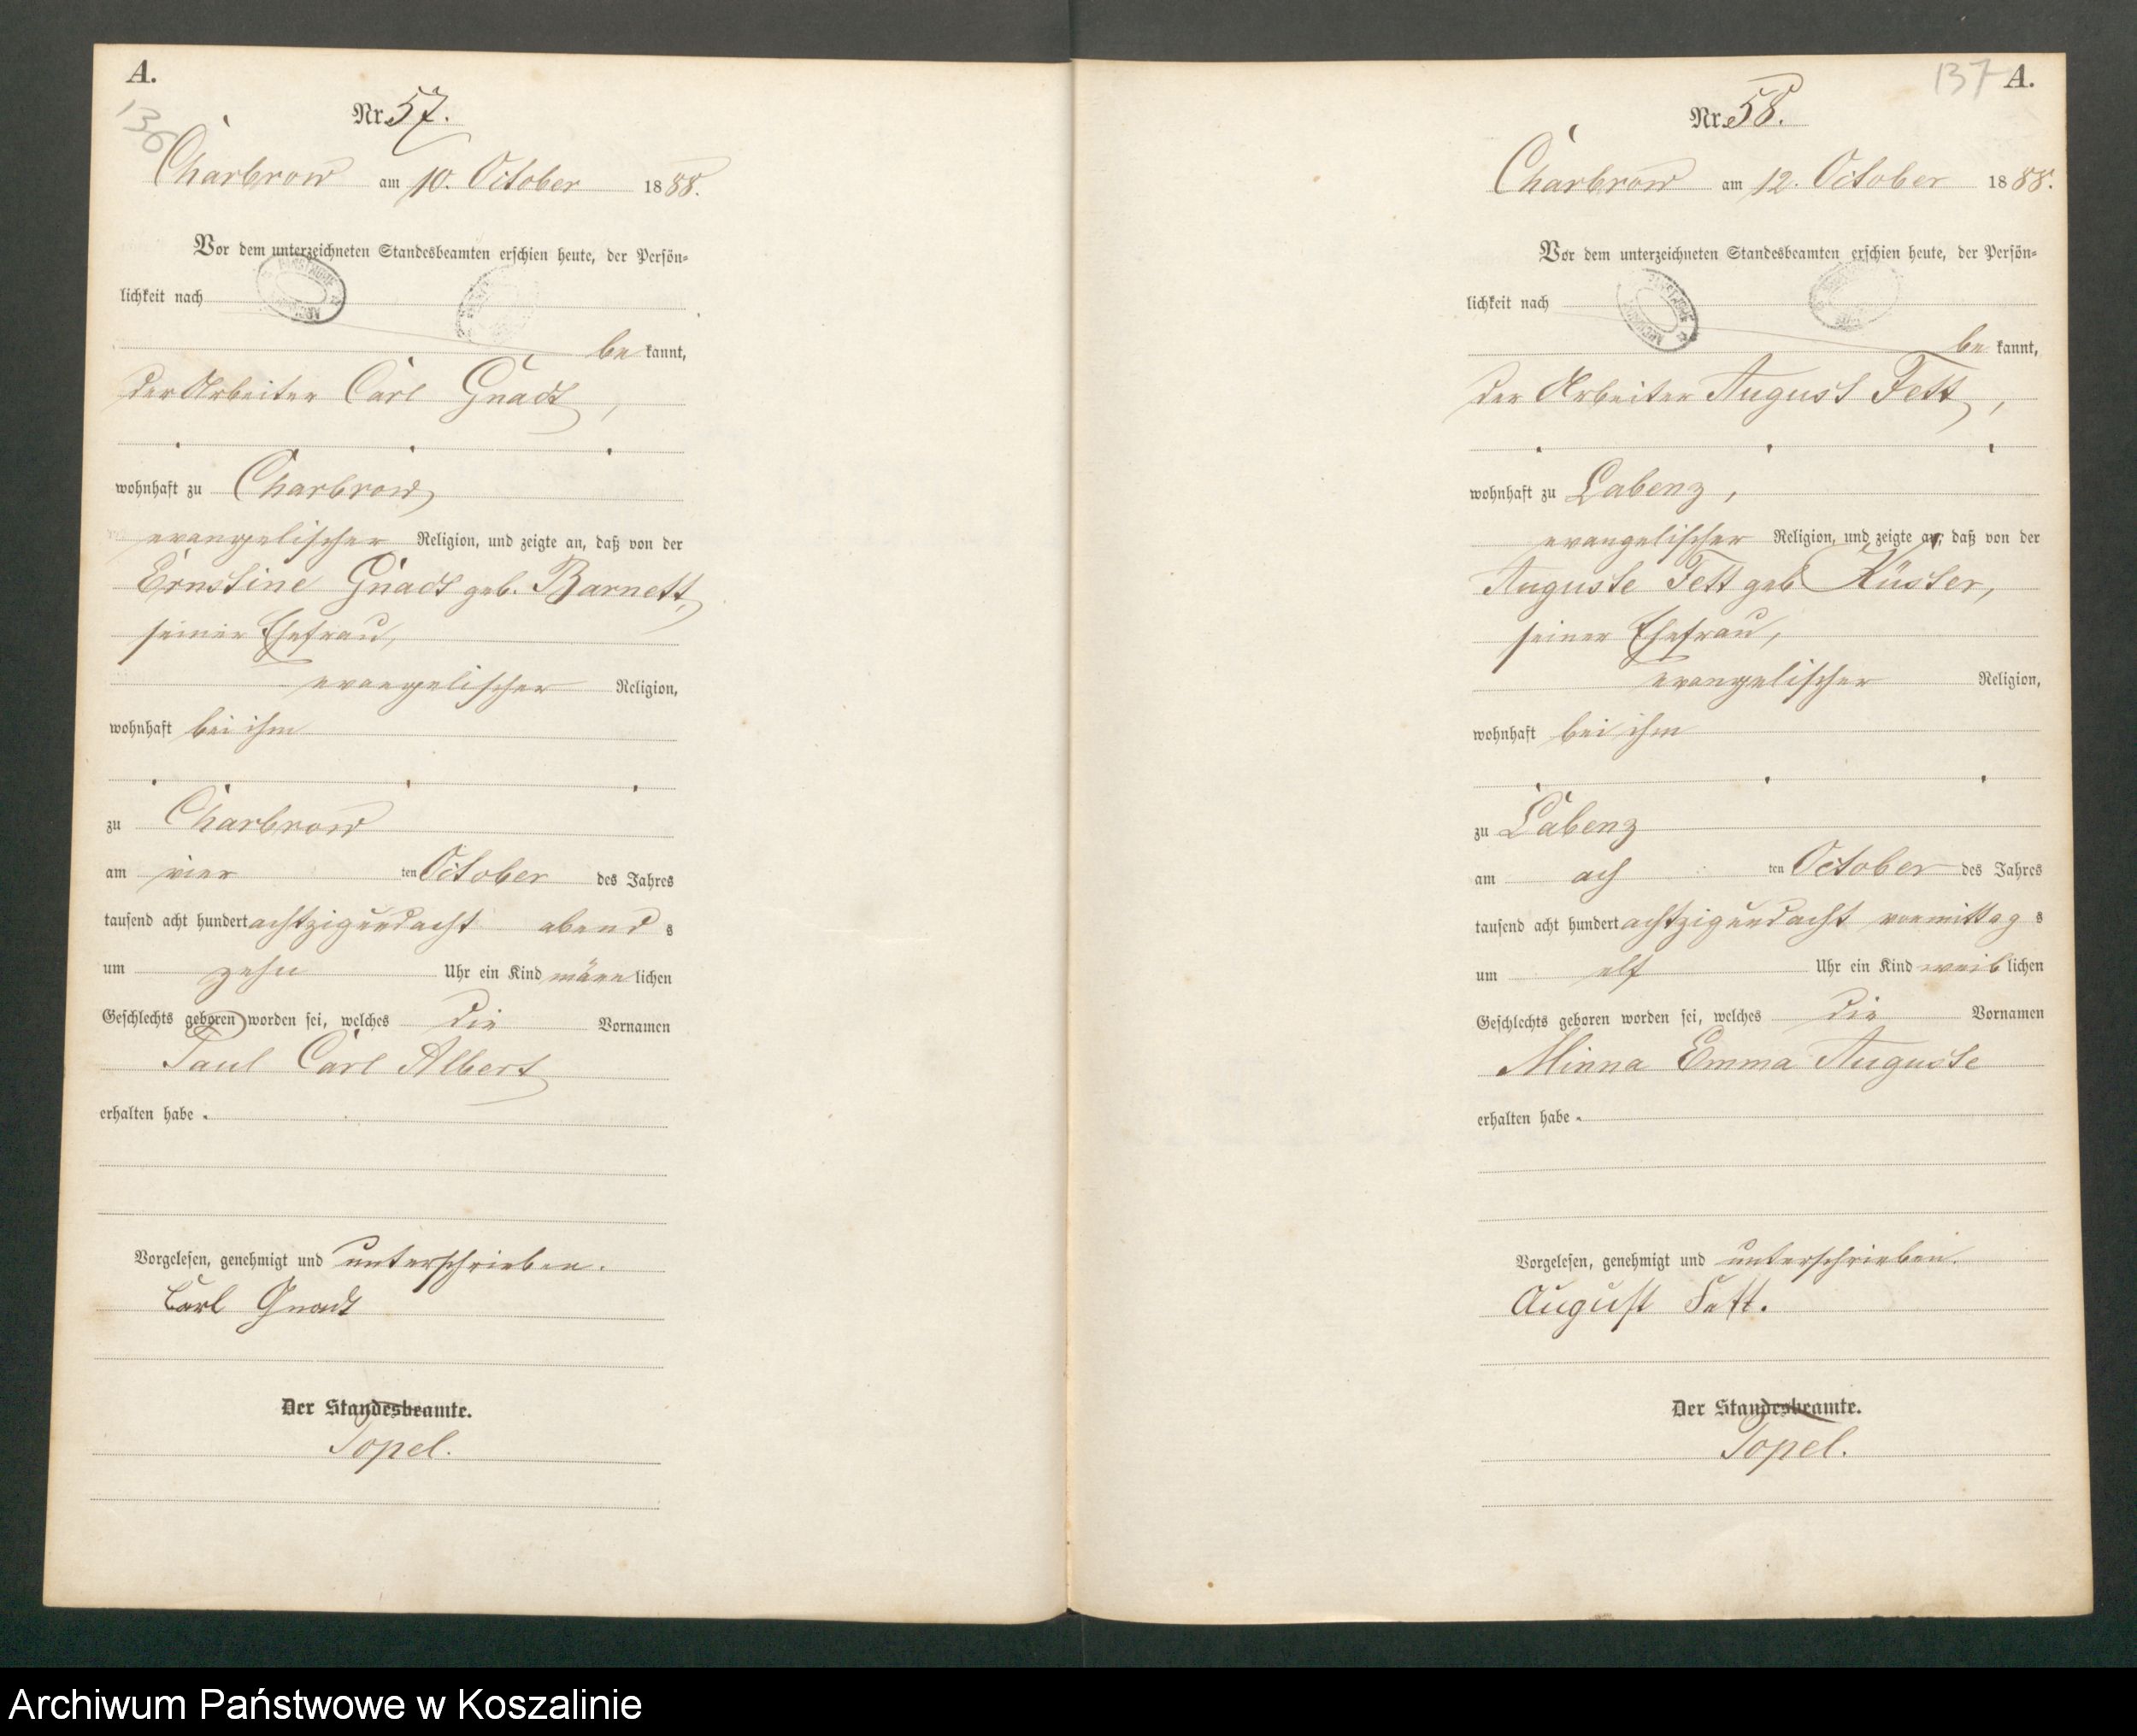 A.
136
Nr. 57.
Charbrow am 10. October 1888.
Vor dem unterzeichneten Standesbeamten erschien heute, der Persön-
lichkeit nach
be kannt,
der Arbeiter Carl Gnadt,
wohnhaft zu Charbrow,
evangelischer Religion, und zeigte an, daß von der
Ernstine Gnadt geb. Barnett,
seiner Ehefrau,
evangelischer Religion,
wohnhaft bei ihm
zu Charbrow
am vier ten October des Jahres
tausend acht hundert achtzigundacht abend s
um zehn Uhr ein Kind männ lichen
Geschlechts geboren worden sei, welches die Vornamen
Paul Carl Albert
erhalten habe.
Vorgelesen, genehmigt und unterschrieben.
Carl Gnadt
Der Standesbeamte.
Topel.
137 A.
Nr. 58.
Charbrow am 12. October 1888.
Vor dem unterzeichneten Standesbeamten erschien heute, der Persön-
lichkeit nach
be kannt,
der Arbeiter August Fett,
wohnhaft zu Labenz,
evangelischer Religion, und zeigte an, daß von der
Auguste Fett geb Küster,
seiner Ehefrau,
evangelischer Religion,
wohnhaft bei ihm
zu Labenz
am ach ten October des Jahres
tausend acht hundert achtzigundacht vormittag s
um elf Uhr ein Kind weib lichen
Geschlechts geboren worden sei, welches die Vornamen
Minna Emma Auguste
erhalten habe.
Vorgelesen, genehmigt und unterschrieben.
August Fett.
Der Standesbeamte.
Topel.
Archiwum Państwowe w Koszalinie